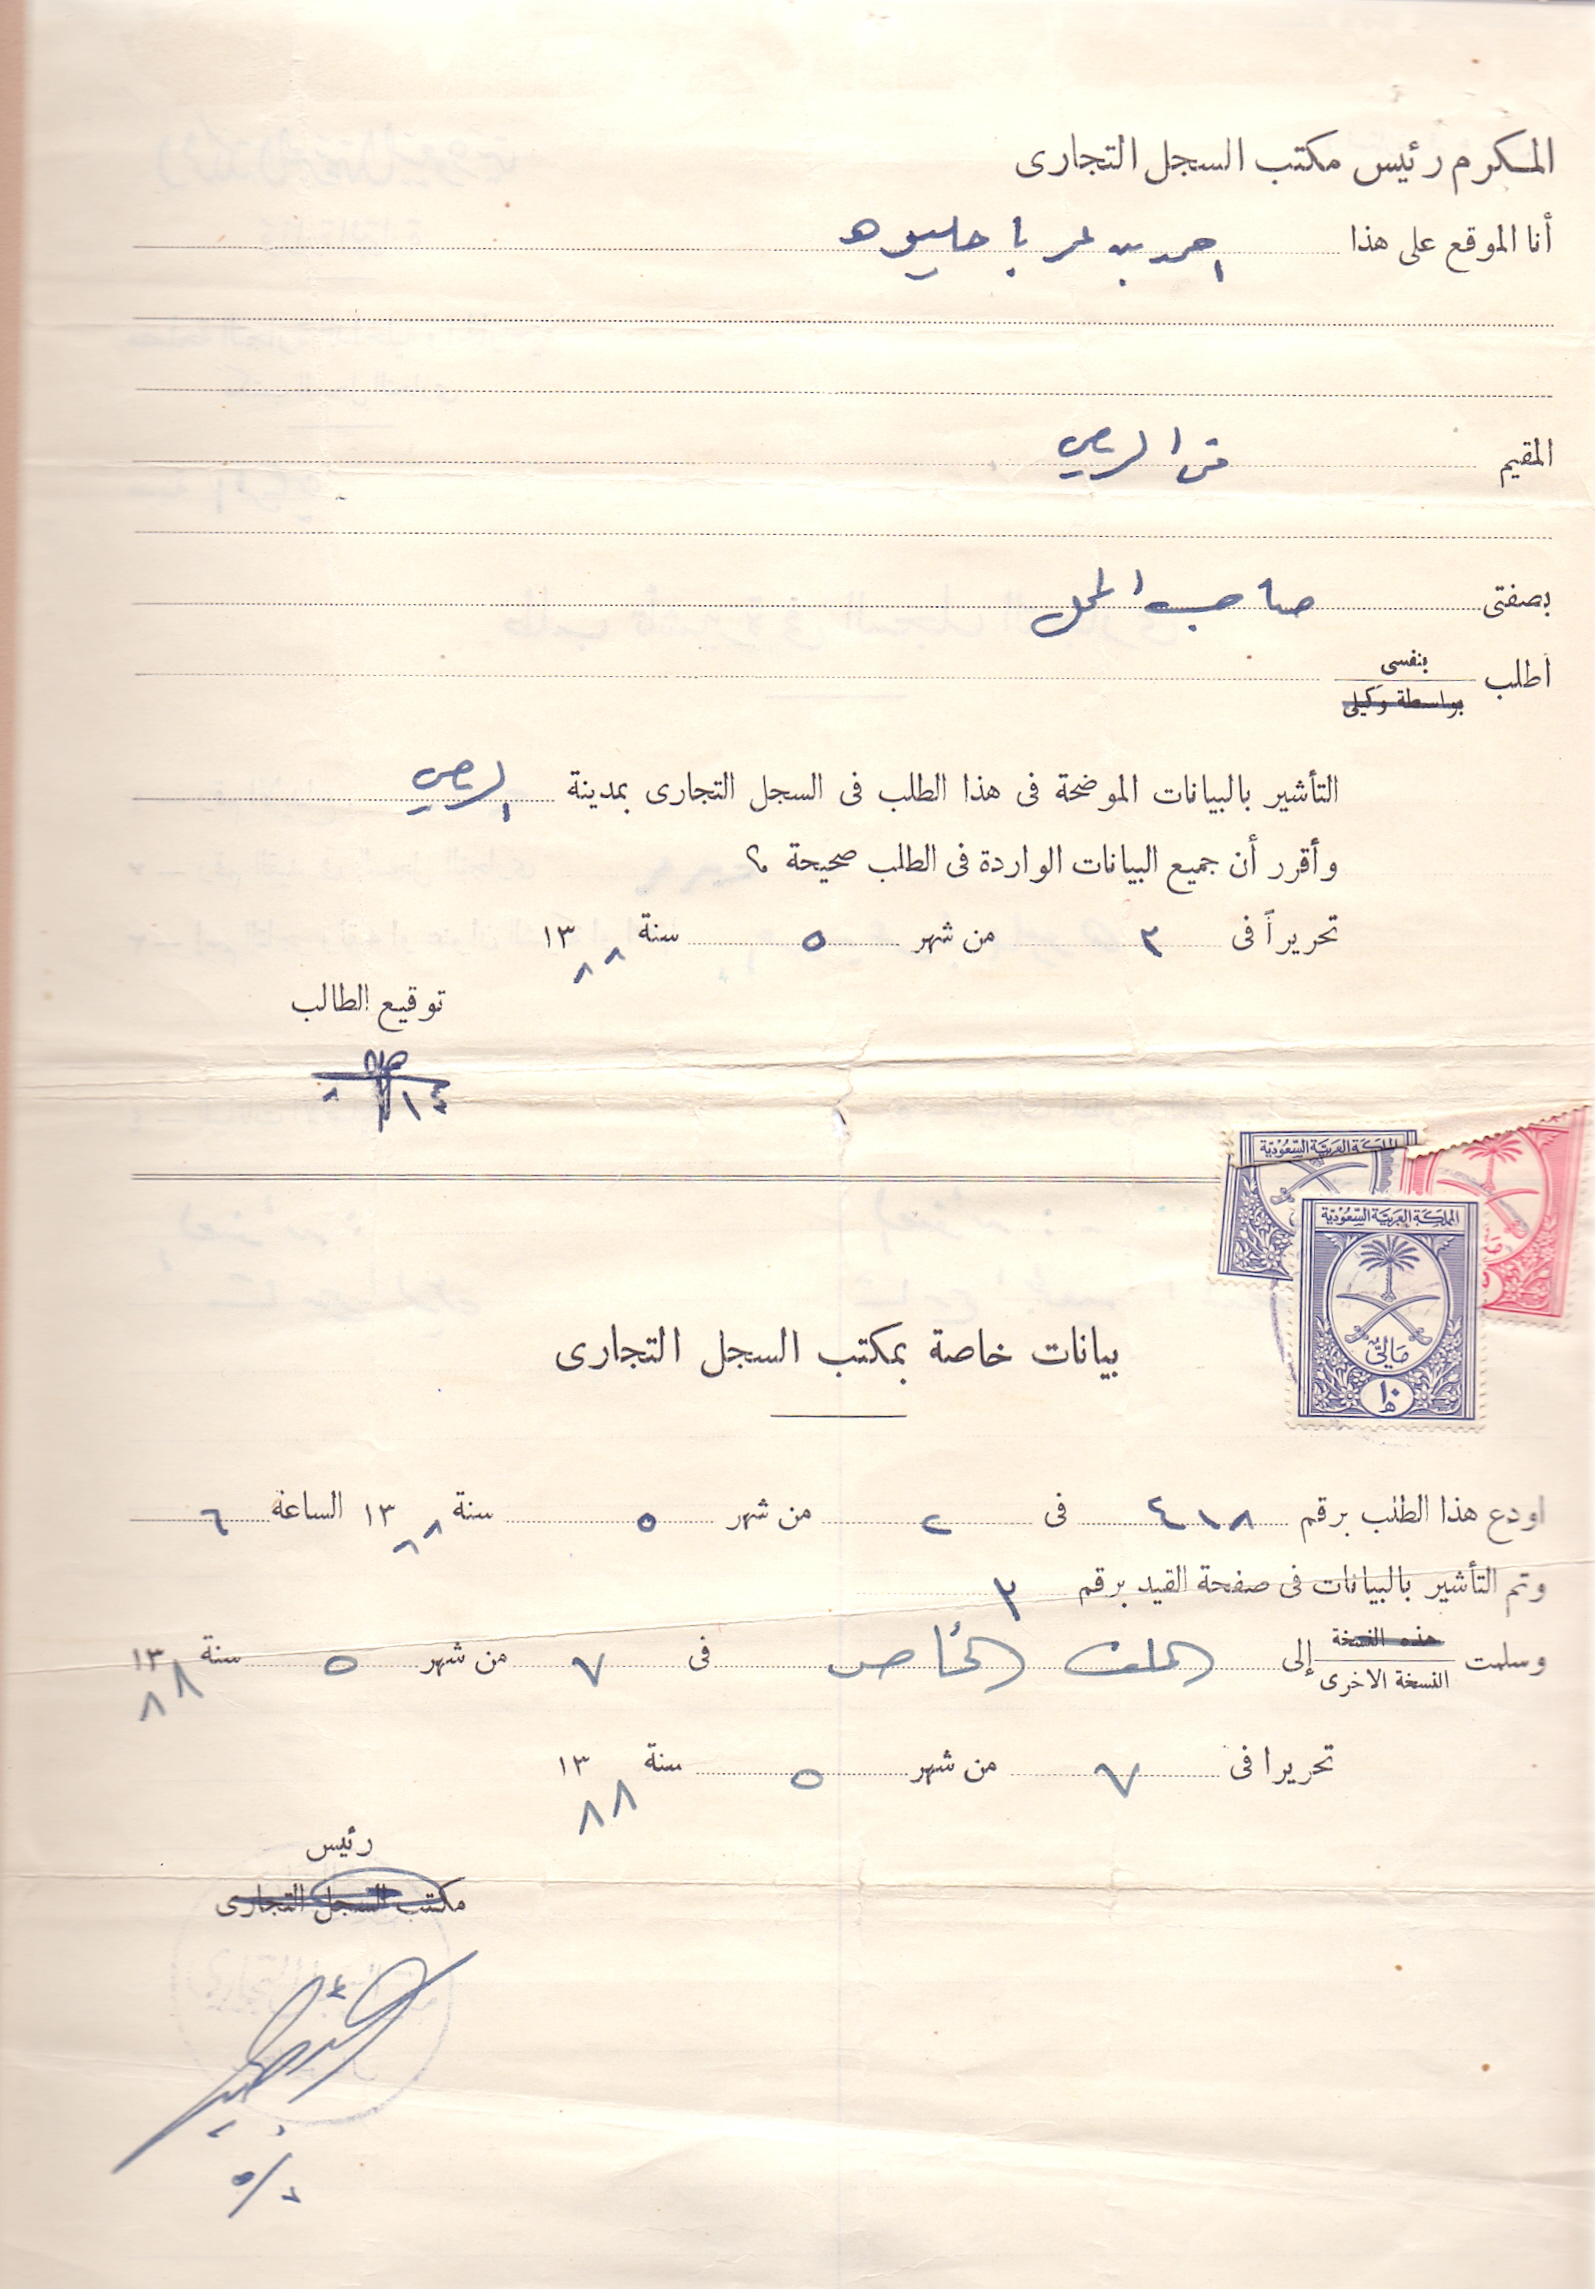 المكرم رئيس مكتب السجل التجارى
أنا الموقع على هذا احمد بن عمر با
المقيم فى الرياض
بصفتى صاحب المحل
أطلب بنفسى
بواسطة وكيلى
التأشير بالبيانات الموضحة فى هذا الطلب فى السجل التجارى بمدينة الرياض
وأقرر أن جميع البيانات الواردة فى الطلب صحيحة ؟
تحريراً فى ٣ من شهر ٥ سنة ١٣٨٨
توقيع الطالب
المملكة العربية السعودية
المملكة العربية السعودية
مالية
١٠
بيانات خاصة بمكتب السجل التجارى
اودع هذا الطلب برقم ٤١٨ فى ٢ من شهر ٥ سنة ١٣٨٨ الساعة ٦
وتم التأشير بالبيانات فى صفحة القيد برقم ٢
وسلمت هذه النسخة
النسخة الاخرى إلى الملف الخاص فى ٧ من شهر ٥ سنة ١٣٨٨
تحريرا فى ٧ من شهر ٥ سنة ١٣٨٨
رئيس
مكتب السجل التجارى